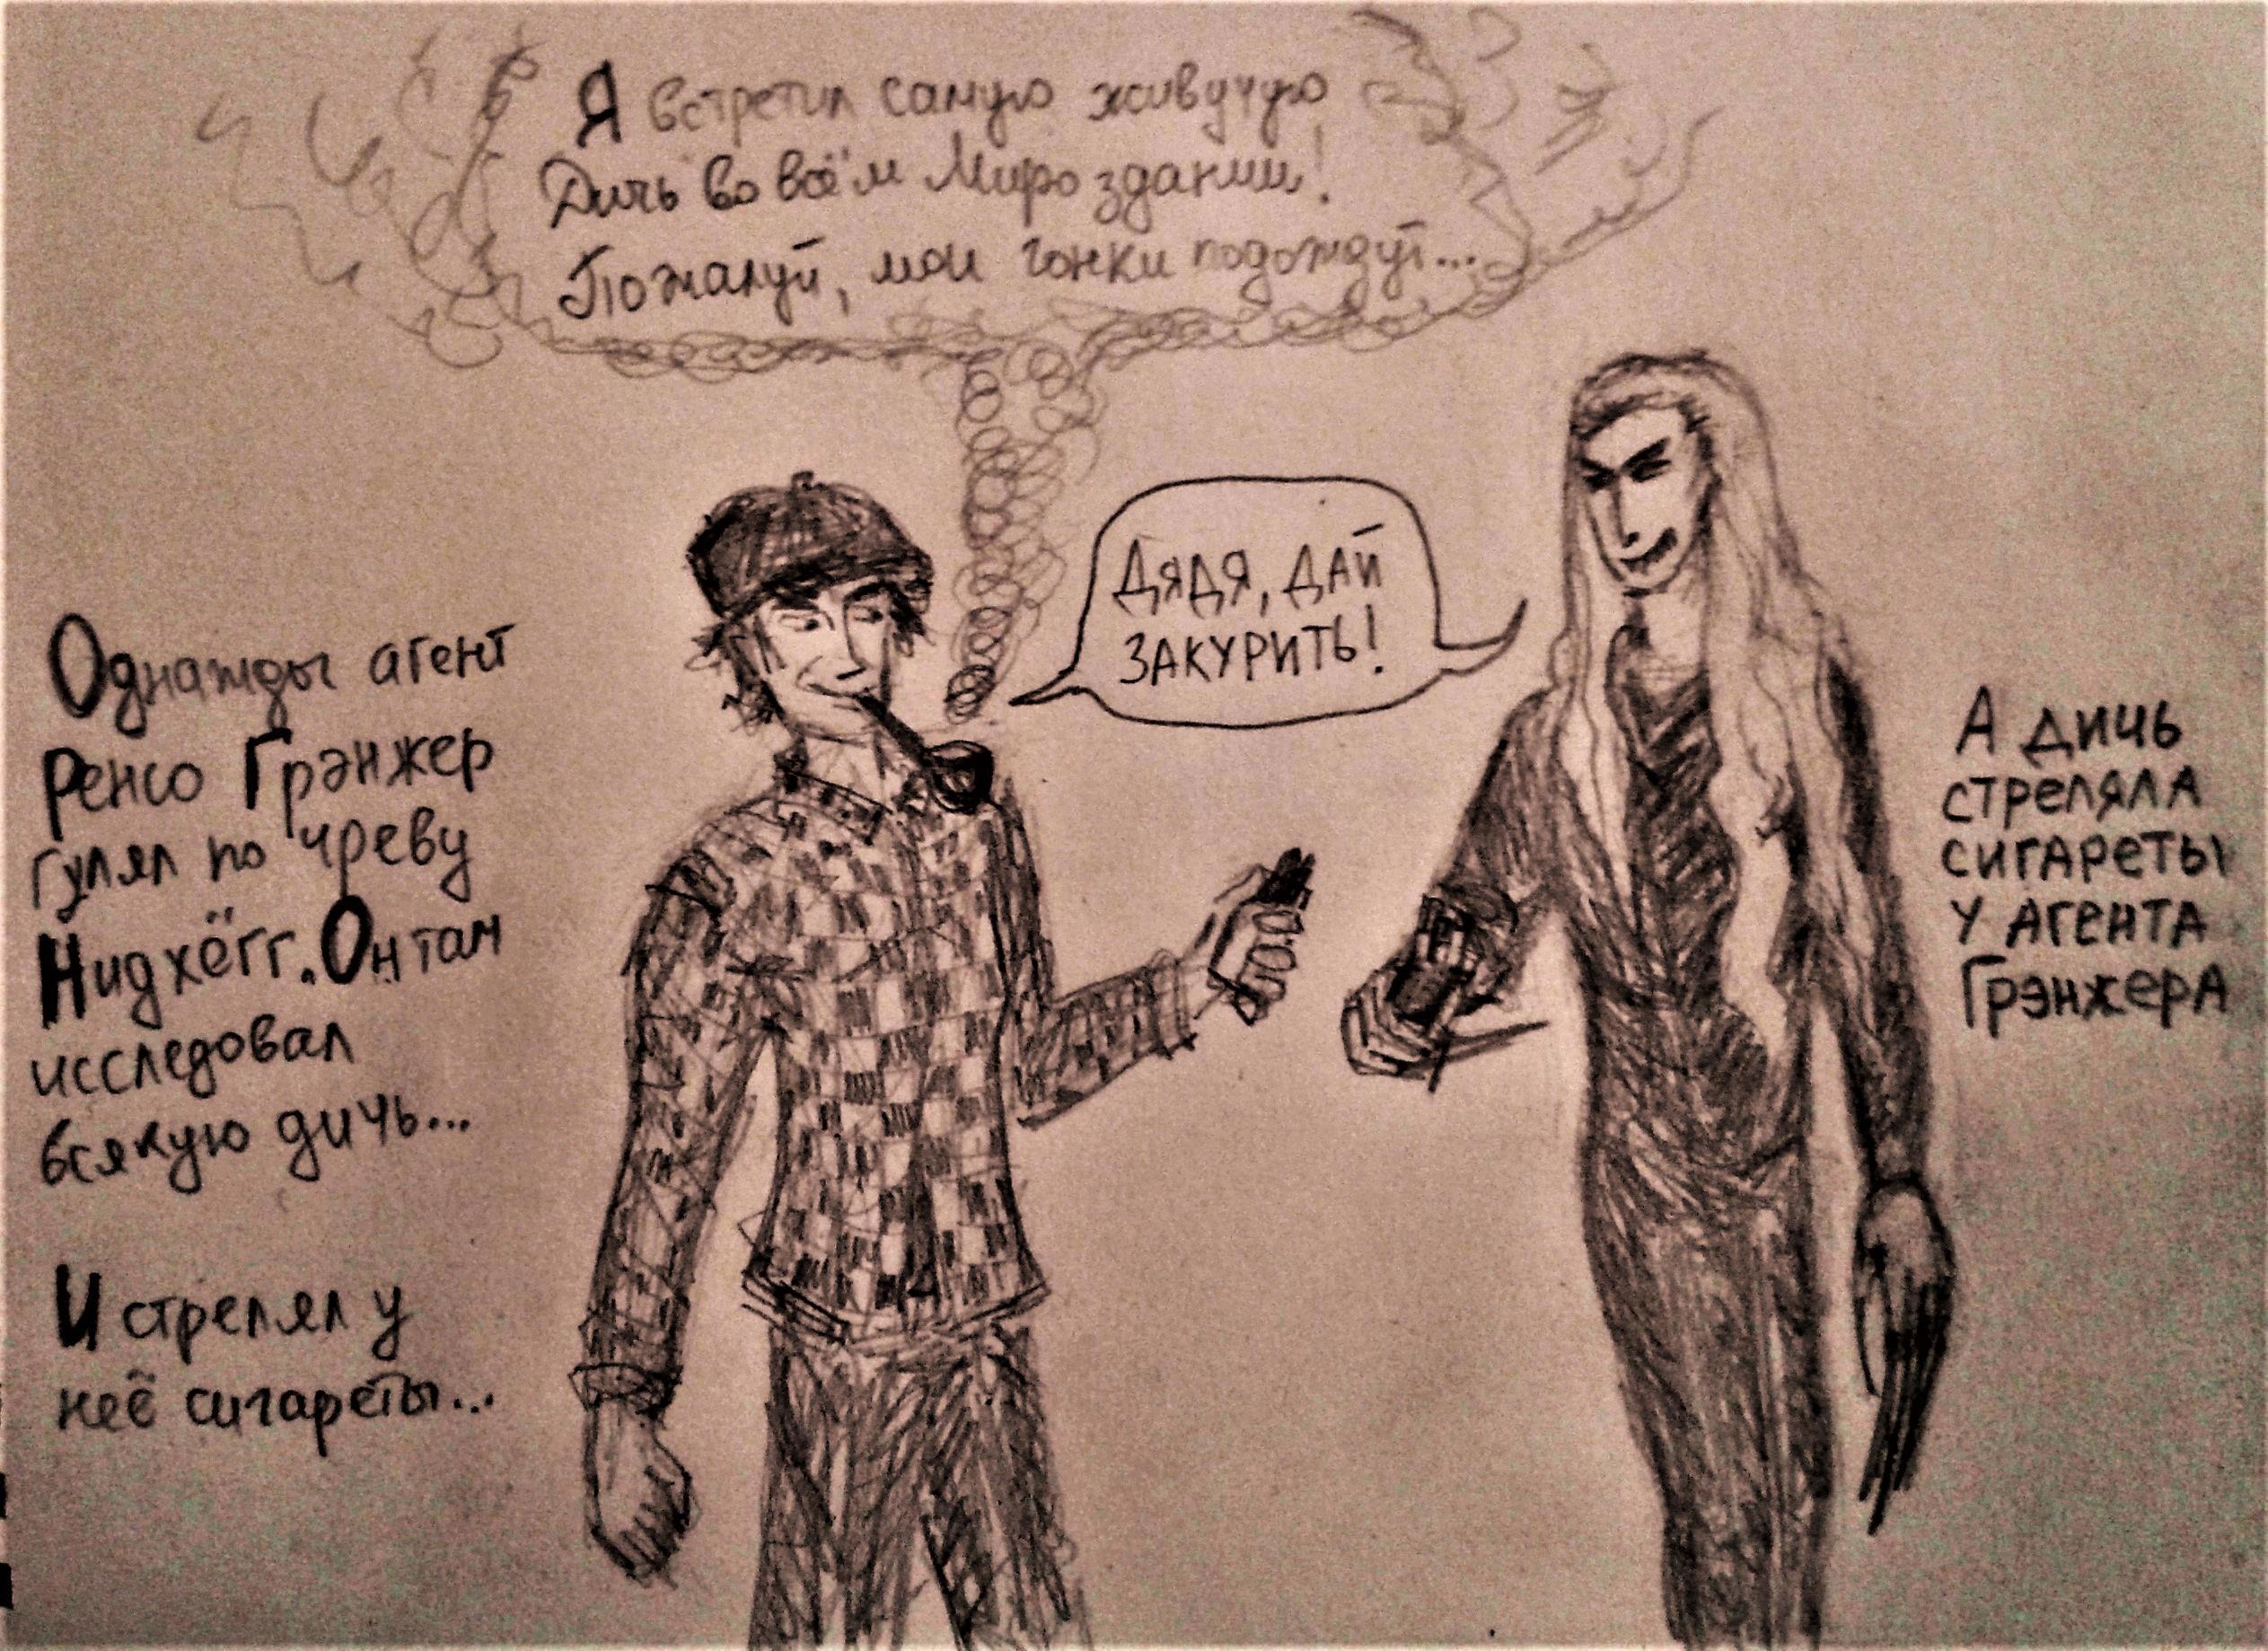 Я встретил самую живучую
Дичь во всём Мироздании!
Пожалуй, мои гонки подождут...
ДЯДЯ, ДАЙ
ЗАКУРИТЬ!
Однажды агент
Ренсо Грэнжер
гулял по чреву
Нидхёгг. Он там
исследовал
всякую дичь...
И стрелял у
неё сигареты...
А ДИЧЬ
СТРЕЛЯЛА
СИГАРЕТЫ
У АГЕНТА
ГРЭНЖЕРА